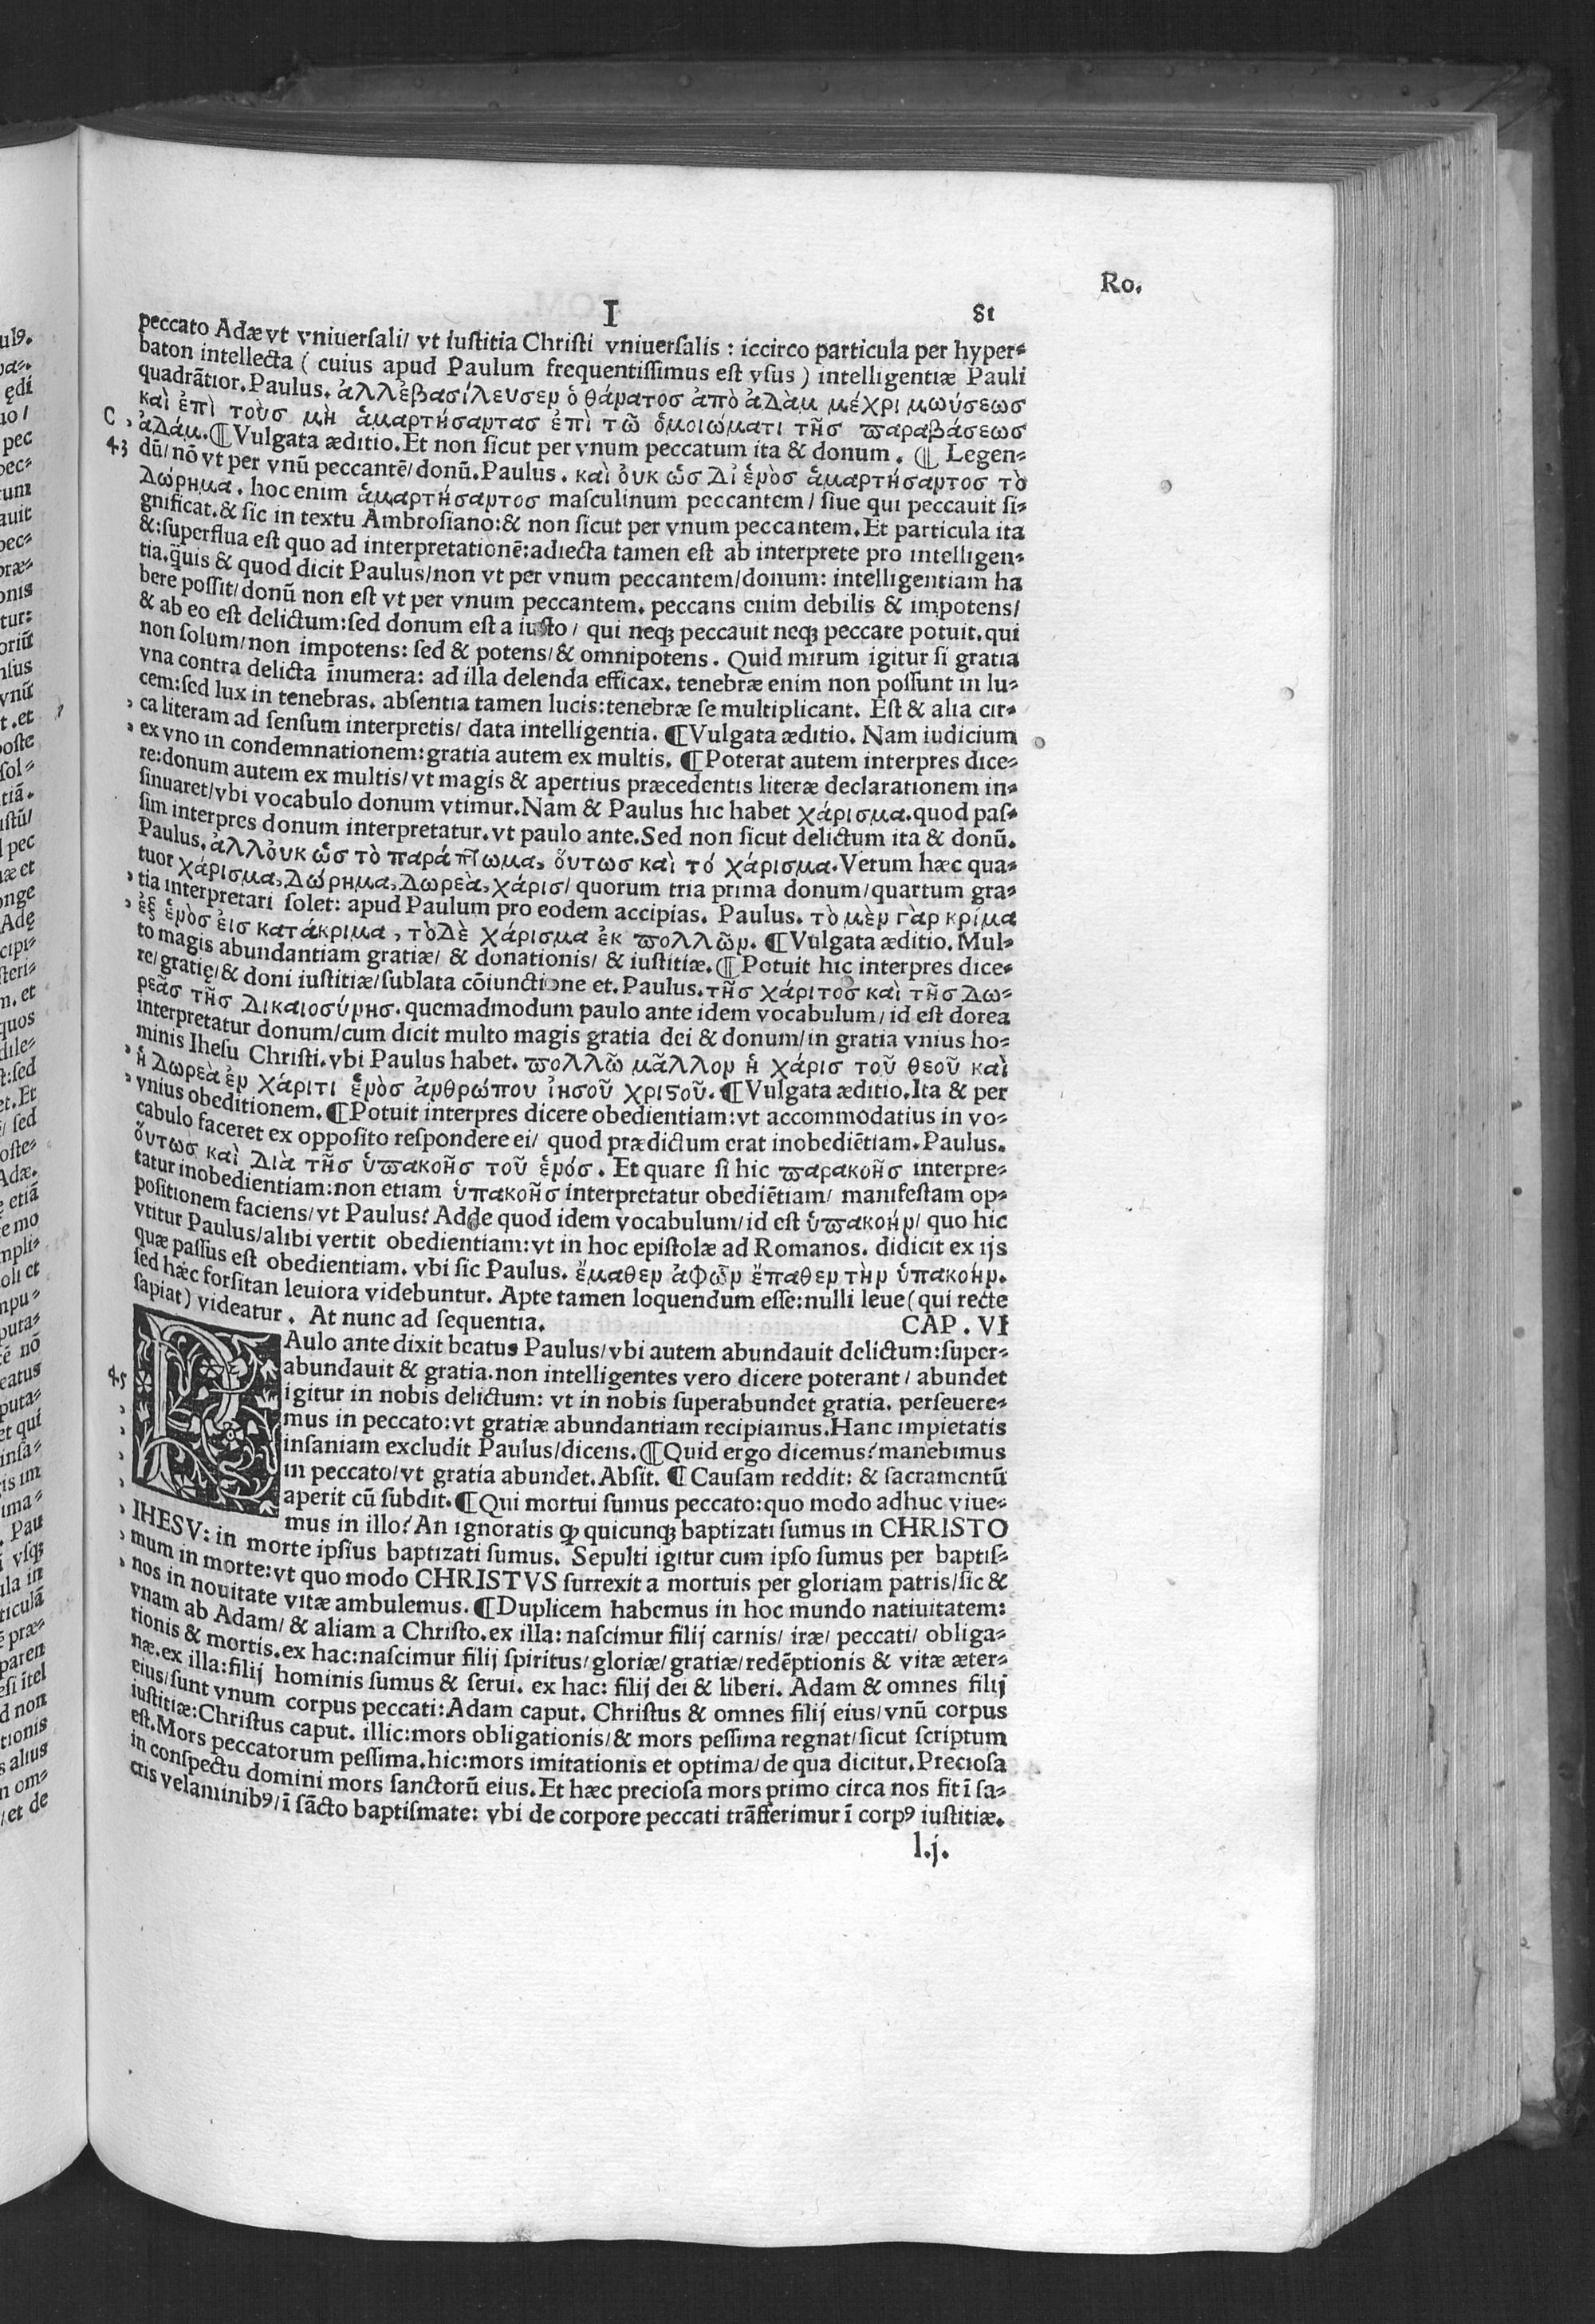 Ro.
I 81
peccato Adæ vt vniuersali/ vt iustitia Christi vniuersalis : iccirco particula per hyper⸗
baton intellecta ( cuius apud Paulum frequentissimus est vsus ) intelligentiæ Pauli
quadrãtior. Paulus. ἀλλ᾽ἐβασίλευσεν ὁ θάνατοσ ἀπὸ ἀδὰμ μέχρι μωύσεωσ
καὶ ἐπὶ τοὺσ μὴ ἁμαρτήσαντασ ἐπὶ τῶ ὁμοιώματι τῆσ παραβάσεωσ
C , ἀδάμ. ¶ Vulgata æditio. Et non sicut per vnum peccatum ita & donum. ¶ Legen⸗
43 dũ/ nõ vt per vnũ peccantẽ/ donũ. Paulus. καὶ ὀυκ ὡσ δι ἑνὸσ ἁμαρτήσαντοσ τὸ
δώρημα. hoc enim ἁμαρτήσαντοσ masculinum peccantem/ siue qui peccauit si⸗
gnificat. & sic in textu Ambrosiano: & non sicut per vnum peccantem. Et particula ita
&: superflua est quo ad interpretationẽ: adiecta tamen est ab interprete pro intelligen⸗
tia. q̃uis & quod dicit Paulus/ non vt per vnum peccantem/ donum: intelligentiam ha
bere possit/ donũ non est vt per vnum peccantem. peccans enim debilis & impotens/
& ab eo est delictum: sed donum est a iusto/ qui neqꝫ peccauit neqꝫ peccare potuit. qui
non solum/ non impotens: sed & potens/ & omnipotens. Quid mirum igitur si gratia
vna contra delicta ĩnumera: ad illa delenda efficax. tenebræ enim non possunt in lu⸗
cem: sed lux in tenebras. absentia tamen lucis: tenebræ se multiplicant. Est & alia cir⸗
, ca literam ad sensum interpretis/ data intelligentia. ¶ Vulgata æditio. Nam iudicium
, ex vno in condemnationem: gratia autem ex multis. ¶ Poterat autem interpres dice⸗
re: donum autem ex multis/ vt magis & apertius præcedentis literæ declarationem in⸗
sinuaret/ vbi vocabulo donum vtimur. Nam & Paulus hic habet χάρισμα. quod pas⸗
sim interpres donum interpretatur. vt paulo ante. Sed non sicut delictum ita & donũ.
Paulus. ἀλλ᾽ὀυκ ὡσ τὸ παράπτωμα, ὅυτωσ καὶ τό χάρισμα. Verum hæc qua⸗
tuor χάρισμα, δώρημα, δωρεὰ, χάρισ/ quorum tria prima donum/ quartum gra⸗
, tia interpretari solet: apud Paulum pro eodem accipias. Paulus. τὸ μὲν γὰρ κρίμα
, ἐξ ἑνὸσ ἐισ κατάκριμα, τὸ δὲ χάρισμα ἐκ πολλῶν. ¶ Vulgata æditio. Mul⸗
to magis abundantiam gratiæ/ & donationis/ & iustitiæ. ¶ Potuit hic interpres dice⸗
re/ gratię/ & doni iustitiæ/ sublata cõiunctione et. Paulus. τῆσ χάριτοσ καὶ τῆσ δω⸗
ρεᾶσ τῆσ δικαιοσύνησ. quemadmodum paulo ante idem vocabulum/ id est dorea
interpretatur donum/ cum dicit multo magis gratia dei & donum/ in gratia vnius ho⸗
minis Ihesu Christi. vbi Paulus habet. πολλῶ μᾶλλον ἡ χάρισ τοῦ θεοῦ καὶ
, ἡ δωρεὰ ἐν χάριτι ἑνὸσ ἀνθρώπου ἰησοῦ χριστοῦ. ¶ Vulgata æditio. Ita & per
, vnius obeditionem. ¶ Potuit interpres dicere obedientiam: vt accommodatius in vo⸗
cabulo faceret ex opposito respondere ei/ quod prædictum erat inobediẽtiam. Paulus.
ὅυτωσ καὶ διὰ τῆσ ὑπακοῆσ τοῦ ἑνόσ. Et quare si hic παρακοῆσ interpre⸗
tatur inobedientiam: non etiam ὑπακοῆσ interpretatur obediẽtiam/ manifestam op⸗
positionem faciens/ vt Paulus? Adde quod idem vocabulum/ id est ὑπακοήν/ quo hic
vtitur Paulus/ alibi vertit obedientiam: vt in hoc epistolæ ad Romanos. didicit ex ijs
quæ passus est obedientiam. vbi sic Paulus. ἔμαθεν ἀφ᾽ὧν ἔπαθεν τὴν ὑπακοήν.
sed hæc forsitan leuiora videbuntur. Apte tamen loquendum esse: nulli leue ( qui recte
sapiat ) videatur. At nunc ad sequentia. CAP. VI
PAulo ante dixit beatus Paulus/ vbi autem abundauit delictum: super⸗
abundauit & gratia. non intelligentes vero dicere poterant/ abundet
45 igitur in nobis delictum: vt in nobis superabundet gratia. perseuere⸗
, mus in peccato: vt gratiæ abundantiam recipiamus. Hanc impietatis
, insaniam excludit Paulus/ dicens. ¶ Quid ergo dicemus? manebimus
, in peccato/ vt gratia abundet. Absit. ¶ Causam reddit: & sacramentũ
, aperit cũ subdit. ¶ Qui mortui sumus peccato: quo modo adhuc viue⸗
mus in illo? An ignoratis ꝙ quicunqꝫ baptizati sumus in CHRISTO
, IHESV: in morte ipsius baptizati sumus. Sepulti igitur cum ipso sumus per baptis⸗
, mum in morte: vt quo modo CHRISTVS surrexit a mortuis per gloriam patris/ sic &
, nos in nouitate vitæ ambulemus. ¶ Duplicem habemus in hoc mundo natiuitatem:
vnam ab Adam/ & aliam a Christo. ex illa: nascimur filij carnis/ iræ/ peccati/ obliga⸗
tionis & mortis. ex hac: nascimur filij spiritus/ gloriæ/ gratiæ/ redẽptionis & vitæ æter⸗
næ. ex illa: filij hominis sumus & serui. ex hac: filij dei & liberi. Adam & omnes filij
eius/ sunt vnum corpus peccati: Adam caput. Christus & omnes filij eius/ vnũ corpus
iustitiæ: Christus caput. illic: mors obligationis/ & mors pessima regnat/ sicut scriptum
est. Mors peccatorum pessima. hic: mors imitationis et optima/ de qua dicitur. Preciosa
in conspectu domini mors sanctorũ eius. Et hæc preciosa mors primo circa nos fit ĩ sa⸗
cris velaminibꝰ/ ĩ sãcto baptismate: vbi de corpore peccati trãsferimur ĩ corpꝰ iustitiæ.
l.j.